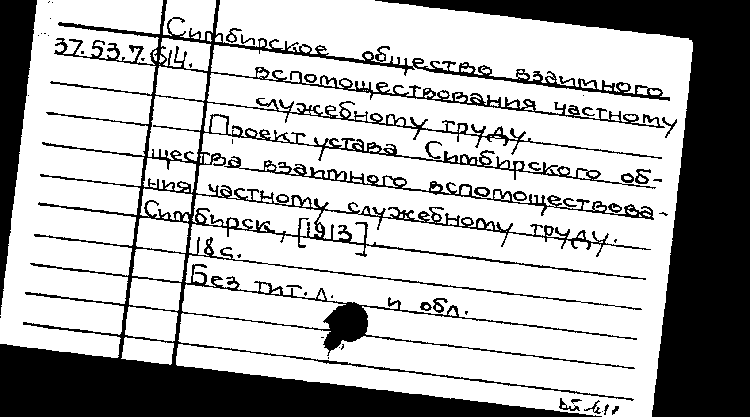 Симбирское общество взаимного
37.53.7.614.
вспомоществования частному
служебному труду.
Проект устава Симбирского об-
щества взаимного вспомоществова-
ния частному служебному труду.
Симбирск, [1913].
18 с.
Без тит. л. и обл.